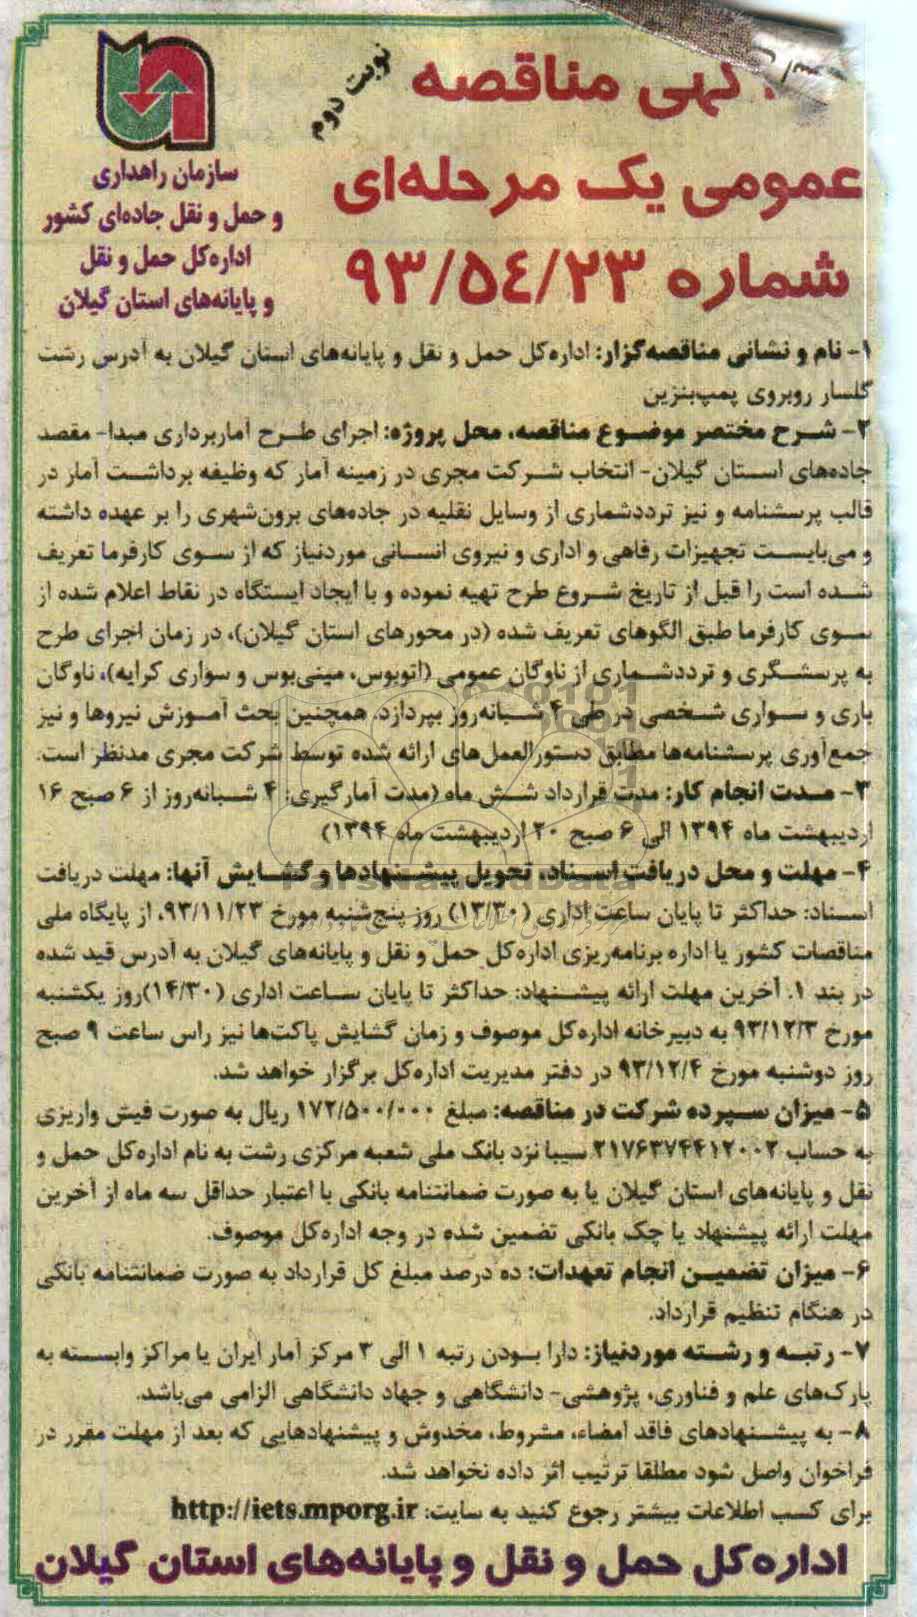 آگهی مناقصه
عمومی یک مرحله‌ای
شماره ۹۳/۵۴/۲۳
نوبت دوم
سازمان راهداری
و حمل و نقل جاده‌ای کشور
اداره‌کل حمل و نقل
و پایانه‌های استان گیلان
۱- نام و نشانی مناقصه‌گزار: اداره‌کل حمل و نقل و پایانه‌های استان گیلان به آدرس رشت
گلسار روبروی پمپ‌بنزین
۲- شرح مختصر موضوع مناقصه، محل پروژه: اجرای طرح آماربرداری مبدا- مقصد
جاده‌های استان گیلان- انتخاب شرکت مجری در زمینه آمار که وظیفه برداشت آمار در
قالب پرسشنامه و نیز ترددشماری از وسایل نقلیه در جاده‌های برون‌شهری را بر عهده داشته
و می‌بایست تجهیزات رفاهی و اداری و نیروی انسانی موردنیاز که از سوی کارفرما تعریف
شده است را قبل از تاریخ شروع طرح تهیه نموده و با ایجاد ایستگاه در نقاط اعلام شده از
سوی کارفرما طبق الگوهای تعریف شده (در محورهای استان گیلان)، در زمان اجرای طرح
به پرسشگری و ترددشماری از ناوگان عمومی (اتوبوس، مینی‌بوس و سواری کرایه)، ناوگان
باری و سواری شخصی در طی ۴ شبانه‌روز بپردازد. همچنین بحث آموزش نیروها و نیز
جمع‌آوری پرسشنامه‌ها مطابق دستورالعمل‌های ارائه شده توسط شرکت مجری مدنظر است.
۳- مدت انجام کار: مدت قرارداد شش ماه (مدت آمارگیری: ۴ شبانه‌روز از ۶ صبح ۱۶
اردیبهشت ماه ۱۳۹۴ الی ۶ صبح ۲۰ اردیبهشت ماه ۱۳۹۴)
۴- مهلت و محل دریافت اسناد، تحویل پیشنهادها و گشایش آنها: مهلت دریافت
اسناد: حداکثر تا پایان ساعت اداری (۱۳/۳۰) روز پنج‌شنبه مورخ ۹۳/۱۱/۲۳، از پایگاه ملی
مناقصات کشور یا اداره برنامه‌ریزی اداره‌کل حمل و نقل و پایانه‌های گیلان به آدرس قید شده
در بند ۱. آخرین مهلت ارائه پیشنهاد: حداکثر تا پایان ساعت اداری (۱۴/۳۰)روز یکشنبه
مورخ ۹۳/۱۲/۳ به دبیرخانه اداره‌کل موصوف و زمان گشایش پاکت‌ها نیز راس ساعت ۹ صبح
روز دوشنبه مورخ ۹۳/۱۲/۴ در دفتر مدیریت اداره‌کل برگزار خواهد شد.
۵- میزان سپرده شرکت در مناقصه: مبلغ ۱۷۲/۵۰۰/۰۰۰ ریال به صورت فیش واریزی
به حساب ۲۱۷۶۳۷۴۴۱۲۰۰۲ سیبا نزد بانک ملی شعبه مرکزی رشت به نام اداره‌کل حمل و
نقل و پایانه‌های استان گیلان یا به صورت ضمانتنامه بانکی با اعتبار حداقل سه ماه از آخرین
مهلت ارائه پیشنهاد یا چک بانکی تضمین شده در وجه اداره‌کل موصوف.
۶- میزان تضمین انجام تعهدات: ده درصد مبلغ کل قرارداد به صورت ضمانتنامه بانکی
در هنگام تنظیم قرارداد.
۷- رتبه و رشته موردنیاز: دارا بودن رتبه ۱ الی ۳ مرکز آمار ایران یا مراکز وابسته به
پارک‌های علم و فناوری، پژوهشی- دانشگاهی و جهاد دانشگاهی الزامی می‌باشد.
۸- به پیشنهادهای فاقد امضاء، مشروط، مخدوش و پیشنهادهایی که بعد از مهلت مقرر در
فراخوان واصل شود مطلقا ترتیب اثر داده نخواهد شد.
برای کسب اطلاعات بیشتر رجوع کنید به سایت: http://iets.mporg.ir
اداره‌کل حمل و نقل و پایانه‌های استان گیلان
ParsNamadData